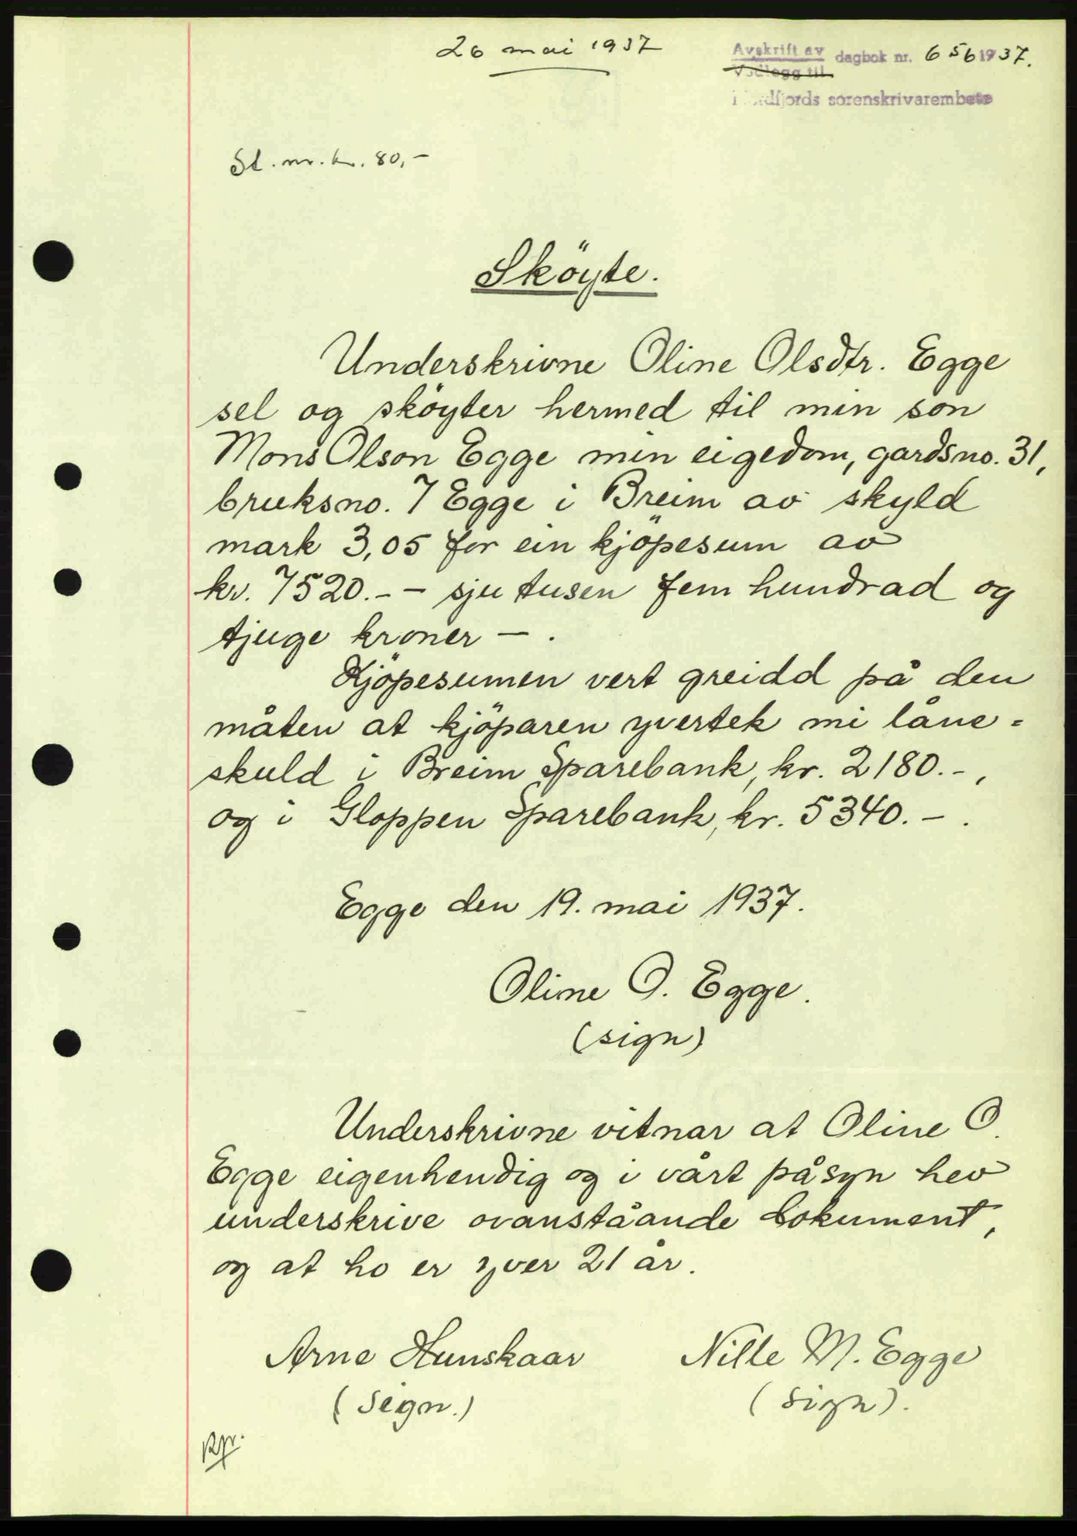 26 mai 1937
Avskrift av dagbok nr. 656 1937.
Vedlegg til
i Nordfjords sorenskrivarembete
St. mr. kr. 80,-
Sköyte.
Underskrivne Oline Olsdtr. Egge
sel og sköyter hermed til min son
Mons Olson Egge min eigedom, gardsno. 31,
bruksno. 7 Egge i Breim av skyld
mark 3,05 for ein kjöpesum av
kr. 7520.- - sju tusen fem hundrad og
tjuge kroner - .
Kjöpesumen vert greidd på den
måten at kjöparen yvertek mi låne-
skuld i Breim Sparebank, kr. 2180.-,
og i Gloppen Sparebank, kr. 5340.- .
Egge den 19. mai 1937.
Oline O. Egge.
(sign)
Underskrivne vitnar at Oline O.
Egge eigenhendig og i vårt påsyn hev
underskrive ovanståande dokument,
og at ho er yver 21 år.
Arne Hunskaar Nille M. Egge
(sign.) (sign).